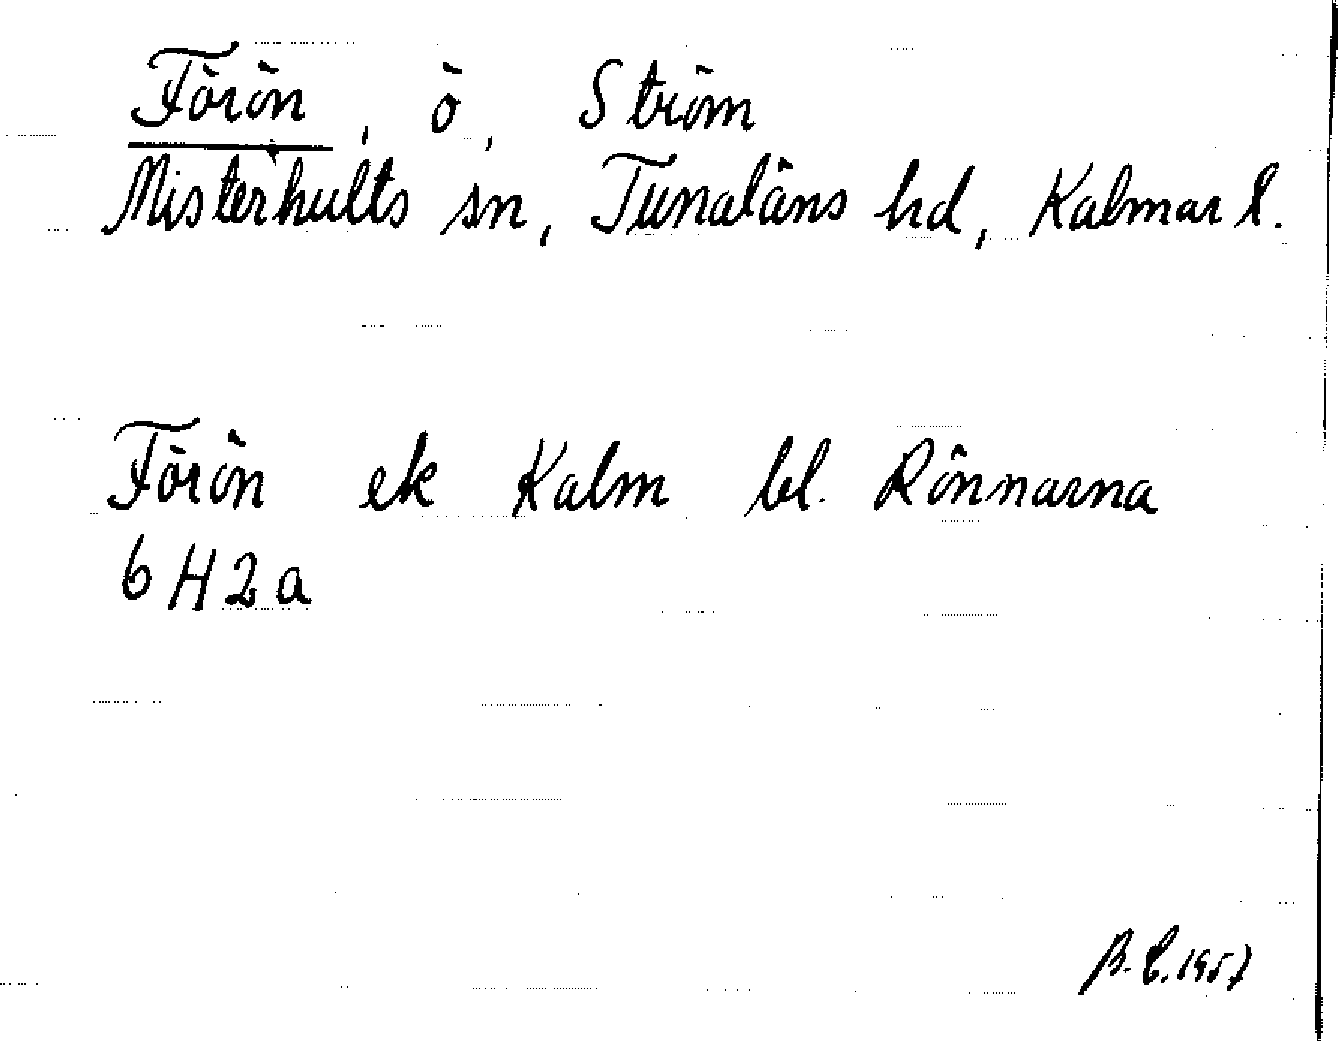 Förön, ö, Ström
Misterhults sn, Tunaläns hd, Kalmar l.
Förön ek Kalm bl. Rönnarna
6H2a
B.L. 1957